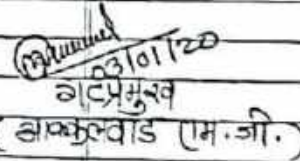 03/01/20
गटप्रमुख
आक्कुलवाड एम.जी.